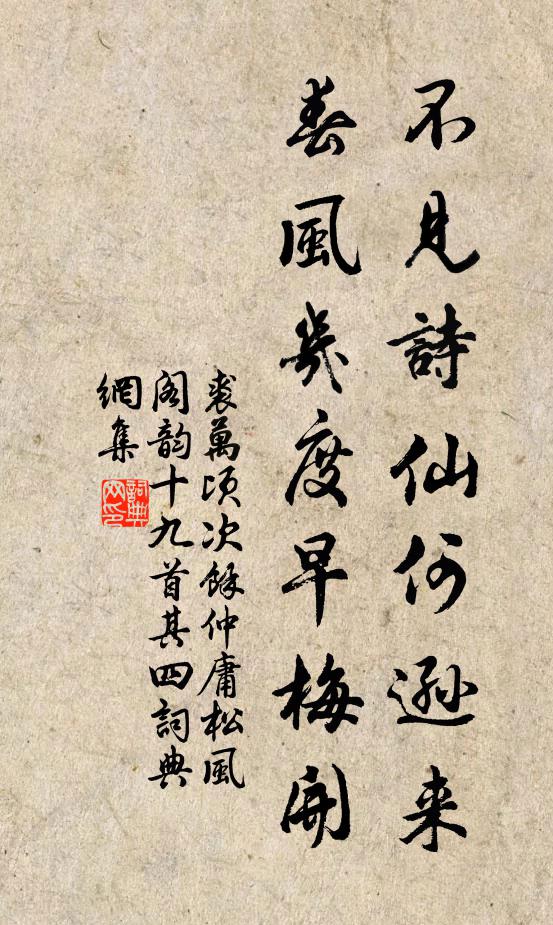 不見詩仙何遜来
春風幾度早梅開
裘萬頃次餘仲庸松風
閣韵十九首其四詞典
網集
詞典
网印